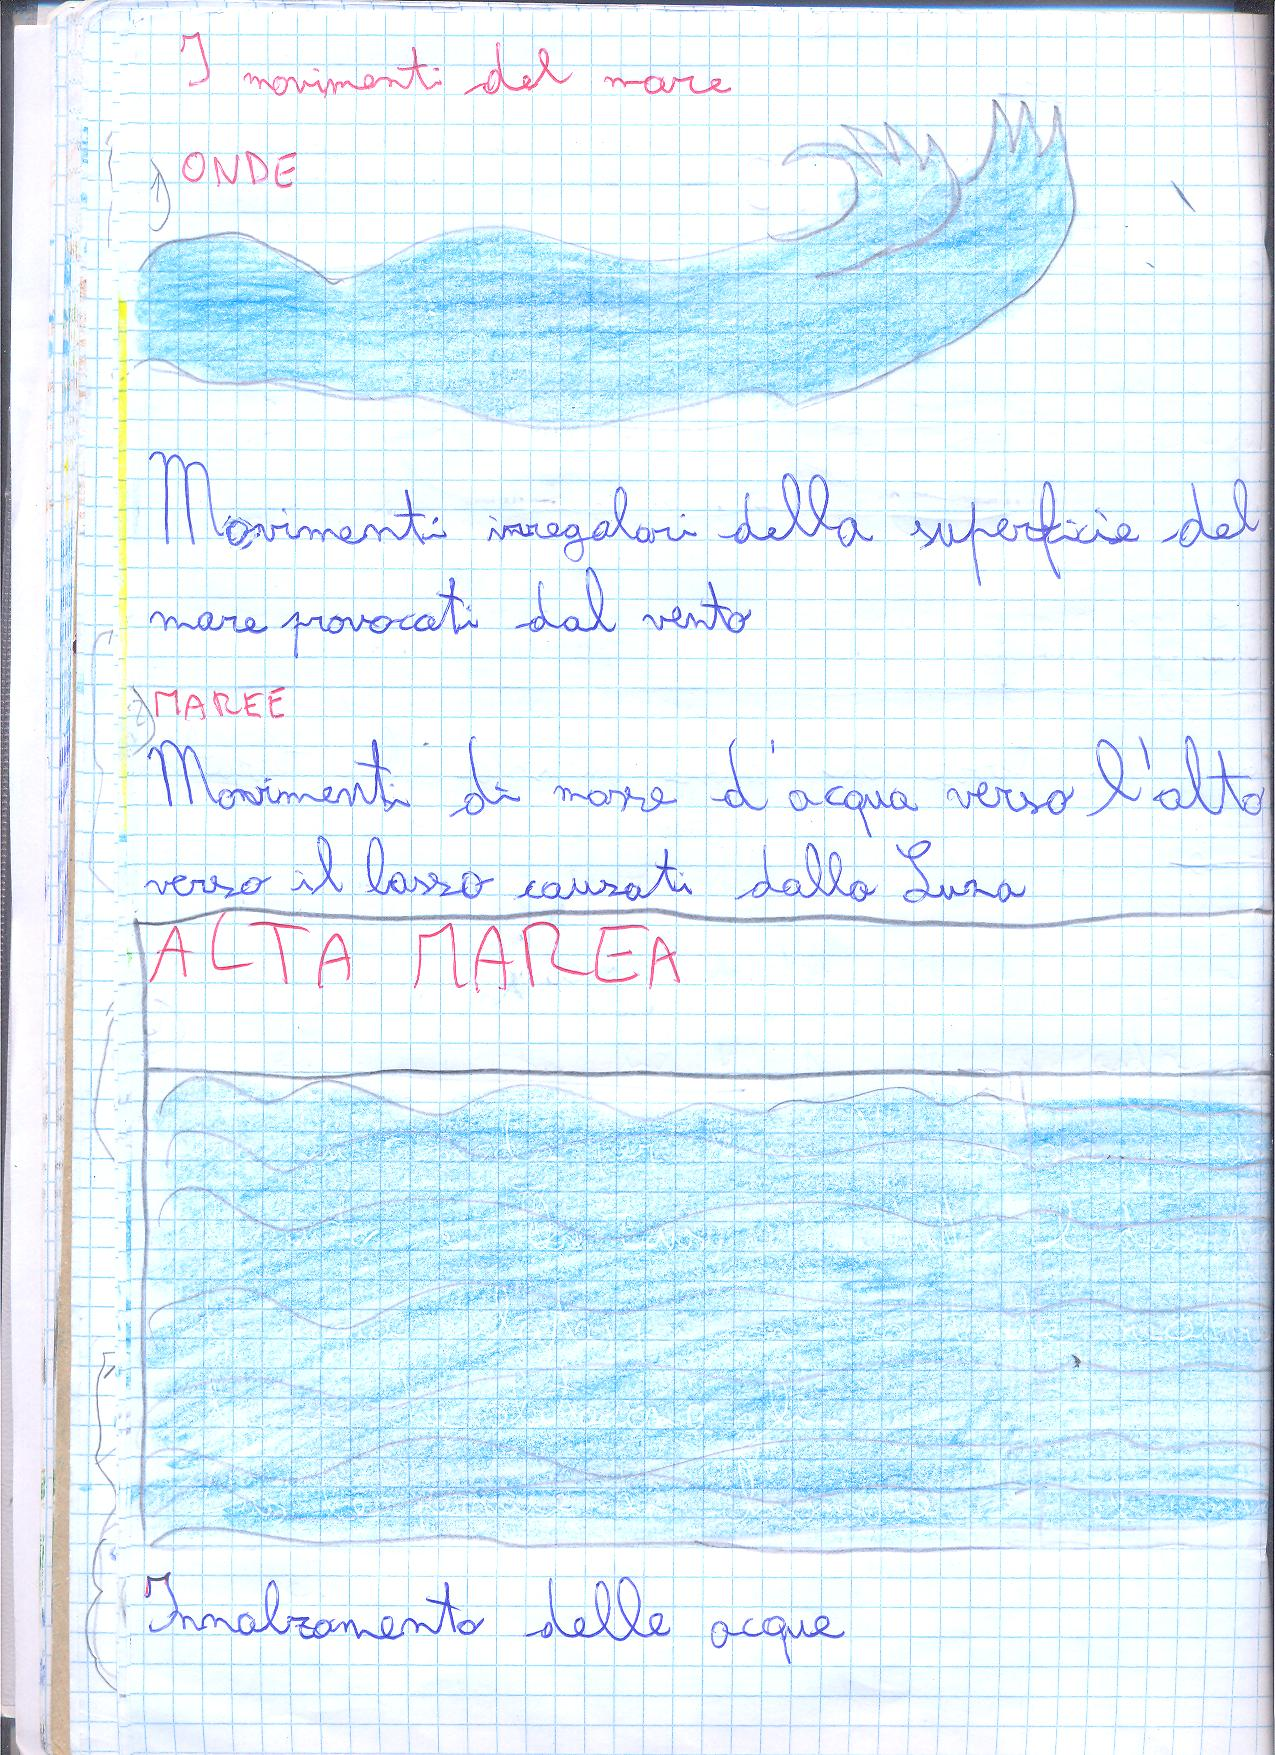 I movimenti del mare
1) ONDE
Movimenti irregolari della superficie del
mare provocati dal vento
2) MAREE
Movimenti di masse d'acqua verso l'alto
verso il basso causati dalla Luna
ALTA MAREA
Innalzamento delle acque